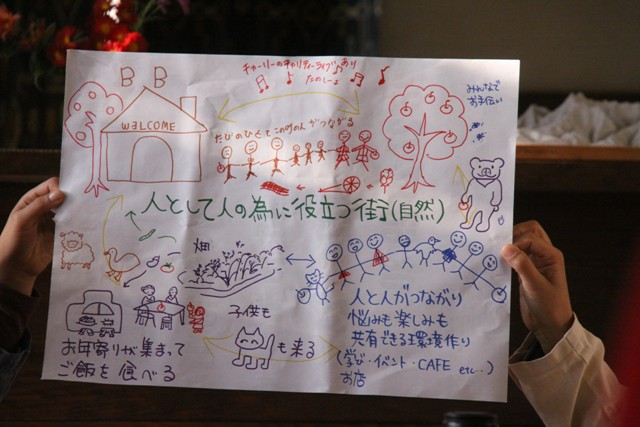 チャーリーのチャリティーライブ♪あり
たのしーよ
B B
WELCOME
みんなで
お手伝い
たびのひととこの町の人がつながる
人として人の為に役立つ街(自然)
畑
子供も
も来る
お年寄りが集まって
ご飯を食べる
人と人がつながり
悩みも楽しみも
共有できる環境作り
(学び・イベント・CAFE etc…)
お店